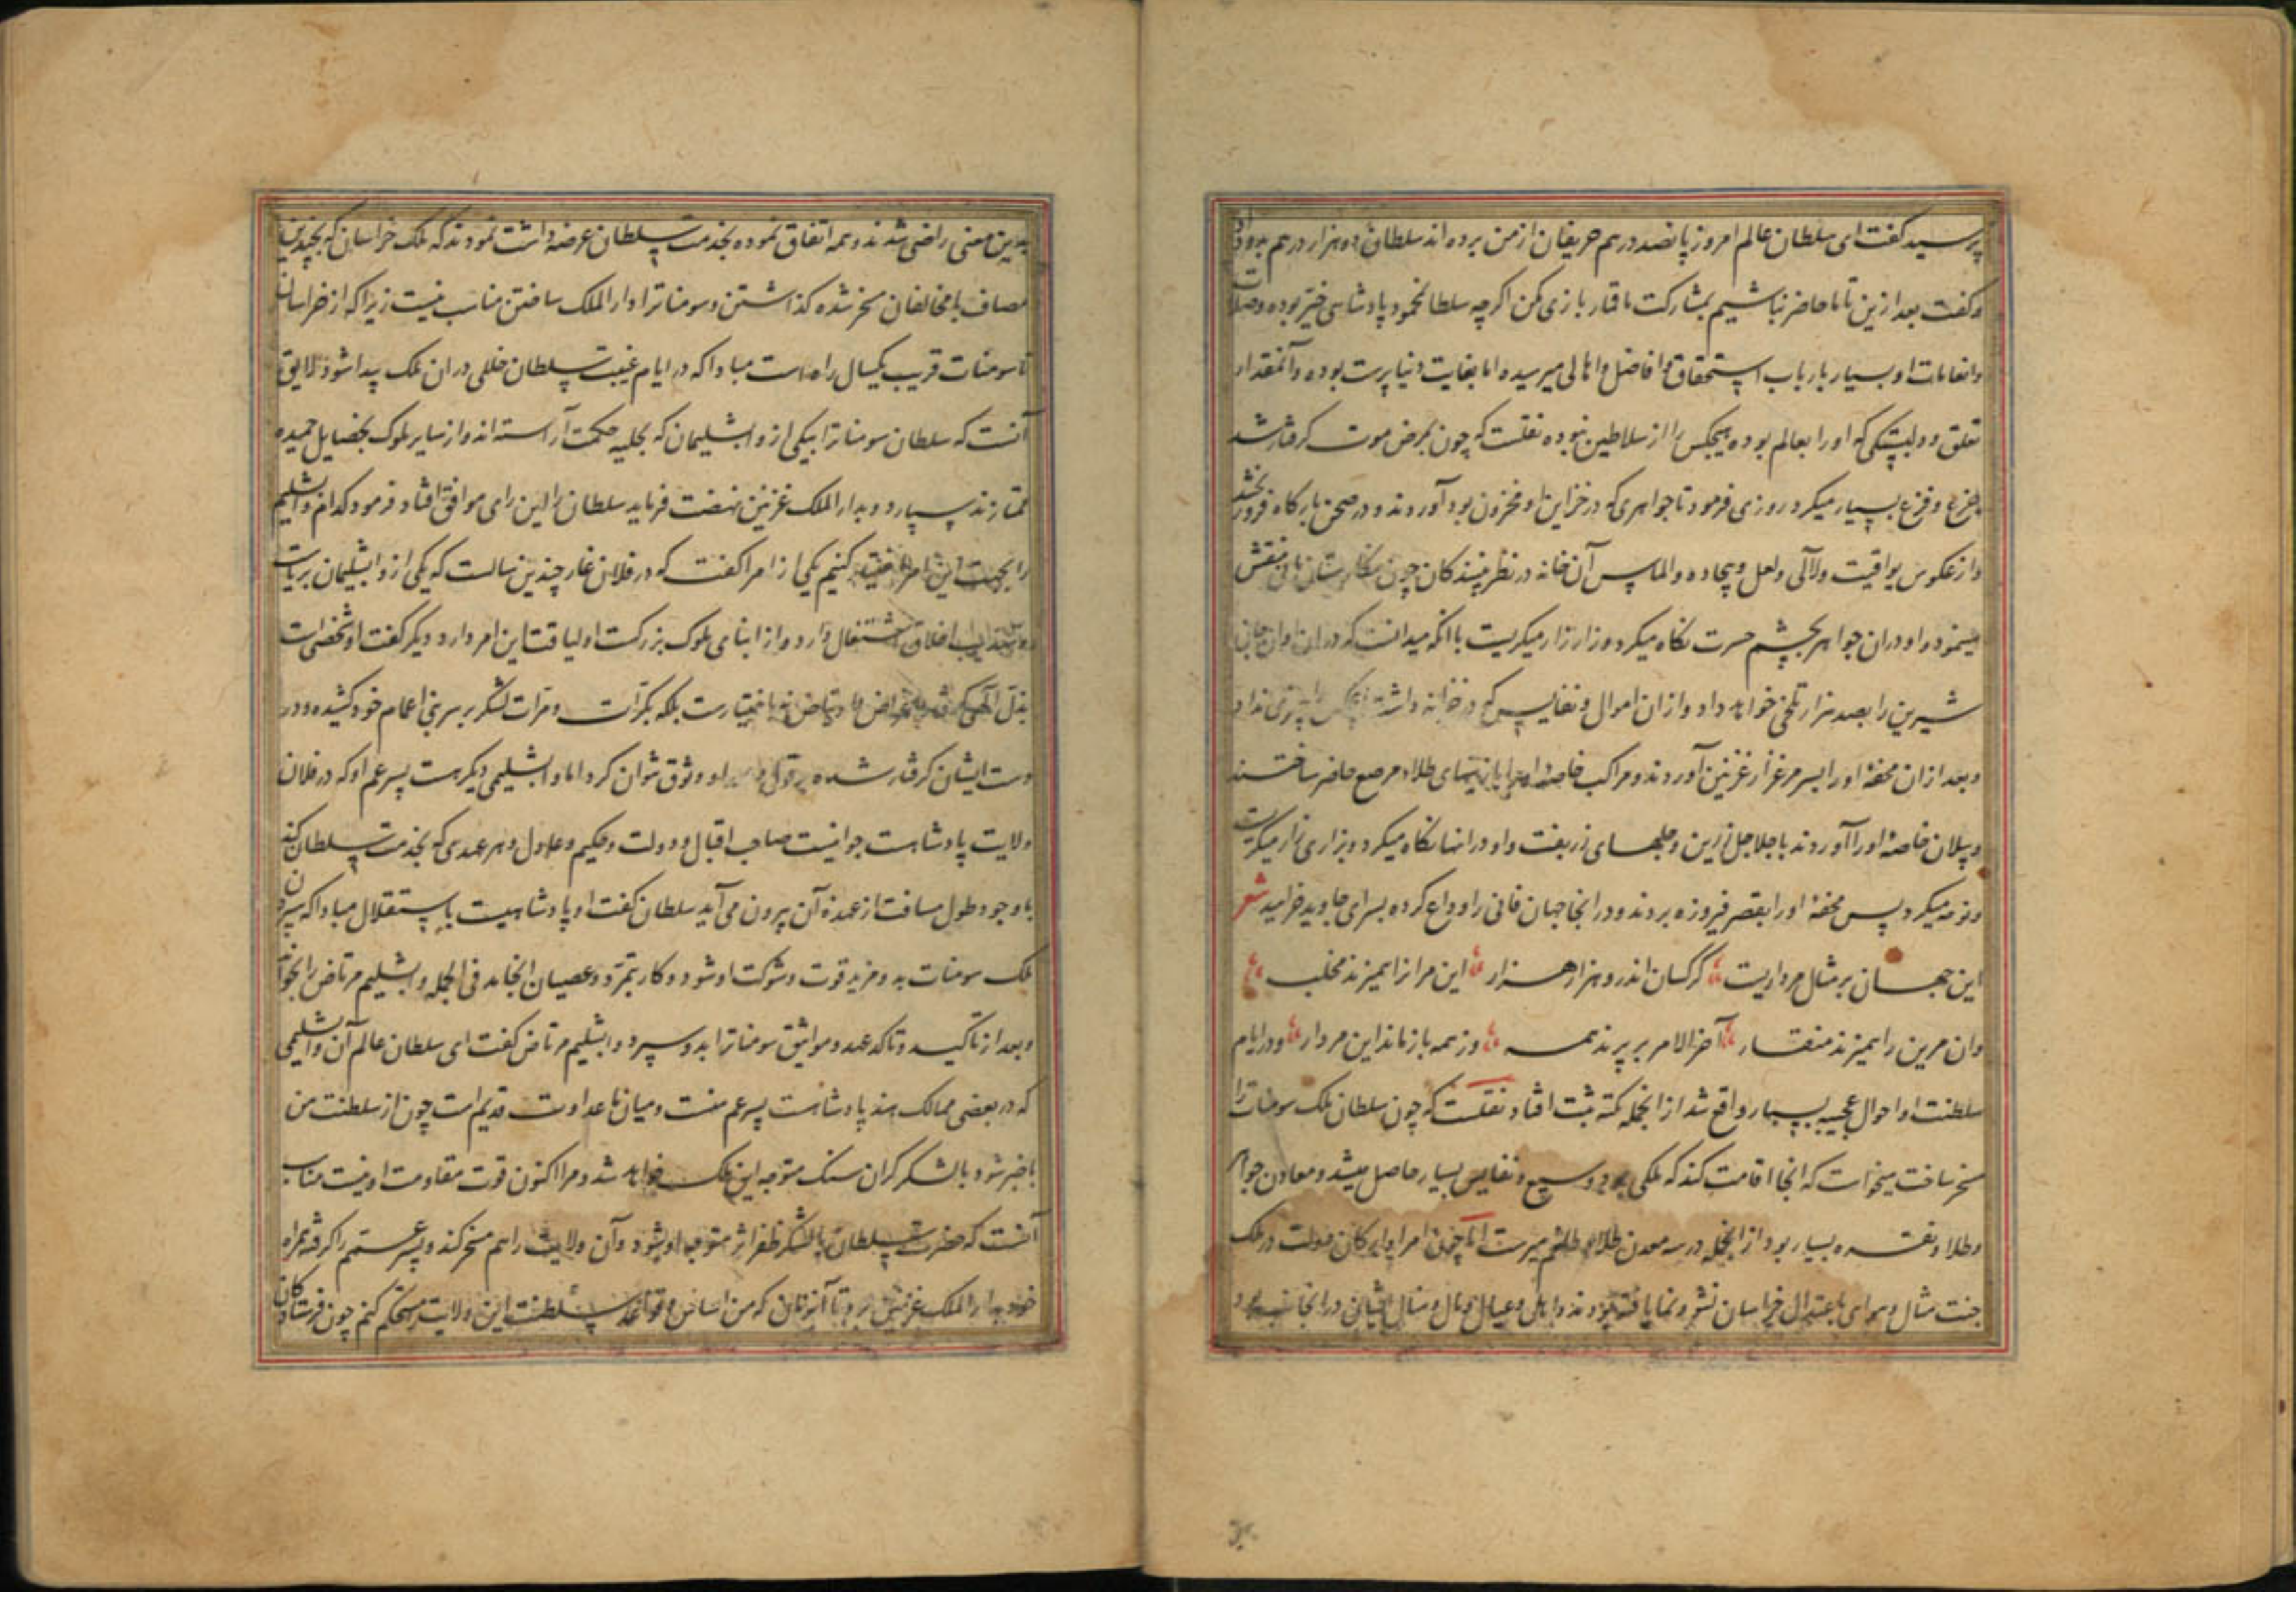 پرسید گفت ای سلطان عالم امروز پانصد درهم حریفان از من برده اند سلطان ده هزار درهم بدو داد
و گفت بعد ازین تا ما حاضر نباشیم بمشارکت ما قمار بازی مکن اگرچه سلطان محمود پادشاسی خیر بوده و صلات
و انعامات او بسیار بارباب استحقاق و افاضل و اهالی میرسیده اما بغایت دنیا پرست بوده و آنمقدار
تعلق و دلبستگی که او را بعالم بوده هیچکس را از سلاطین نبوده نقلست که چون بمرض موت گرفتار شد
جزع و فزع بسیار میکرد روزی فرمود تا جواهری که در خزاین او مخزون بود آوردند و در صحن بارگاه فرو
و از عکوس یواقیت و لآلی و لعل و بیجاده و الماس آن خانه در نظر بینندگان چون نگارستان مانی منقش
مینمود و او در ان جواهر بچشم حسرت نگاه میکرد و زار زار میگریست با انکه میدانست که در ان اوان جان
شیرین را بصد هزار تلخی خواهد داد و از ان اموال و نفایس که در خزانه داشت هیچکس را چیزی نداد
و بعد از ان محفهٔ او را بسر مرغزار غزنین آوردند و مراکب خاصهٔ او را با زینهای طلا و مرصع حاضر ساختند
و پیلان خاصهٔ او را آوردند با جلاجل زرین و جلهای زربفت و او در انها نگاه میکرد و بزاری زار میگریست
و نوحه میکرد پس محفهٔ او را بقصر فیروزه بردند و در انجا جهان فانی را وداع کرده بسرای جاوید خرامید شعر
این جهان بر مثال مرداریست کرگسان اندرو هزار هزار این مرانرا همیزند مخلب
وان مرین را همیزند منقار آخر الامر بر پرند همه وز همه باز ماند این مردار و در ایام
سلطنت او احوال عجیبه بسیار واقع شد از انجمله نکته ثبت افتاد نقلست که چون سلطان ملک سومنات را
مسخر ساخت میخواست که انجا اقامت کند که ملکی بود وسیع و نفایس بسیار حاصل میشد و معادن جواهر
و طلا و نقره بسیار بود از انجمله در سه معدن طلاء طلغم میرست اما چون امرا و ارکان دولت در ملک
جنت مثال و هوای با عتدال خراسان نشو و نما یافته بودند و اهل و عیال و مال و منال ایشان در انجا بود
بدین معنی راضی شدند و همه اتفاق نموده بخدمت سلطان عرضه داشت نمودند که ملک خراسان که بچندین
مصاف با مخالفان مسخر شده گذاشتن و سومنات را دار الملک ساختن مناسب نیست زیرا که از خراسان
تا سومنات قریب یکسال راه است مبادا که در ایام غیبت سلطان خللی در ان ملک پیدا شود لایق
آنست که سلطان سومنات را بیکی از وابشلیمان که بحلیه حکمت آراسته اند و از سایر ملوک بخصایل حمیده
ممتازند سپارد و بدار الملک غزنین نهضت فرماید سلطان را این رای موافق افتاد فرمود کدام وابشلیم
را بجهت این امر تعیین کنیم یکی از امرا گفت که در فلان غار چندین سالست که یکی از وابشلیمان بریاضت
و تهذیب اخلاق اشتغال دارد و از ابنای ملوک بزرگست او لیاقت این امر دارد دیگر گفت او شخصی است
بذل الهی گرفته اغراض مرتاض نه باختیارست بلکه بکرات و مرات لشکر بر سر بنی اعمام خود کشیده و در
دست ایشان گرفتار شده بر قول او وثوق نتوان کرد اما وابشلیمی دیگر هست پسر عم او که در فلان
ولایت پادشاهست جوانیست صاحب اقبال و دولت و حکیم و عادل و هر عهدی که بخدمت سلطان کند
با وجود طول مسافت از عهده آن بیرون می آید سلطان گفت او پادشاهیست باستقلال مبادا که سپردن
ملک سومنات بدو مزید قوت و شوکت او شود و کار بتمرد و عصیان انجامد فی الجمله وابشلیم مرتاض را بخواند
و بعد از تاکید و تاکد عهد و مواثیق سومنات را بدو سپرد وابشلیم مرتاض گفت ای سلطان عالم آن وابشلیمی
که در بعضی ممالک هند پادشاست پسر عم منست و میان ما عداوت قدیم است چون از سلطنت من
با خبر شود با لشکر گران سنگ متوجه این ملک خواهد شد و مرا اکنون قوت مقاومت او نیست مناسب
آنست که حضرت سلطان با لشکر ظفر اثر متوجه او شود و آن ولایت را هم مسخر کند و پسر عمم را گرفته همراه
خود بدار الملک غزنین برد تا آنزمان که من اساس و قواعد سلطنت این ولایت مستحکم کنم چون فرستادگان